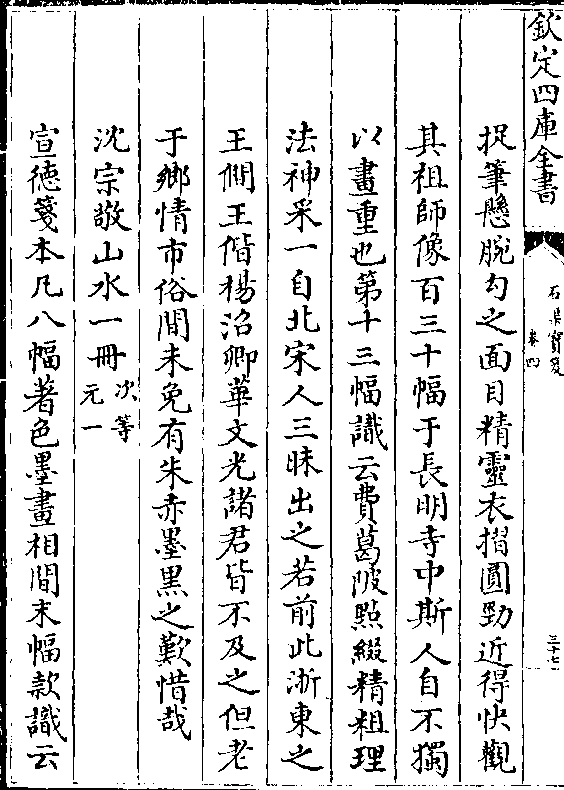 欽定四庫全書
石渠寶笈
卷四
三十七
捉筆懸腕勾之面目精靈衣摺圓勁近得快觀
其祖師像百三十幅于長明寺中斯人自不獨
以畫重也第十三幅識云費葛陂點綴精粗理
法神采一自北宋人三昧出之若前此浙東之
王僩王偕楊沿卿華文光諸君皆不及之但老
于鄉情市俗間未免有朱赤墨黒之歎惜哉
沈宗敬山水一冊次等
元一
宣徳箋本凡八幅著色墨畫相間末幅款識云